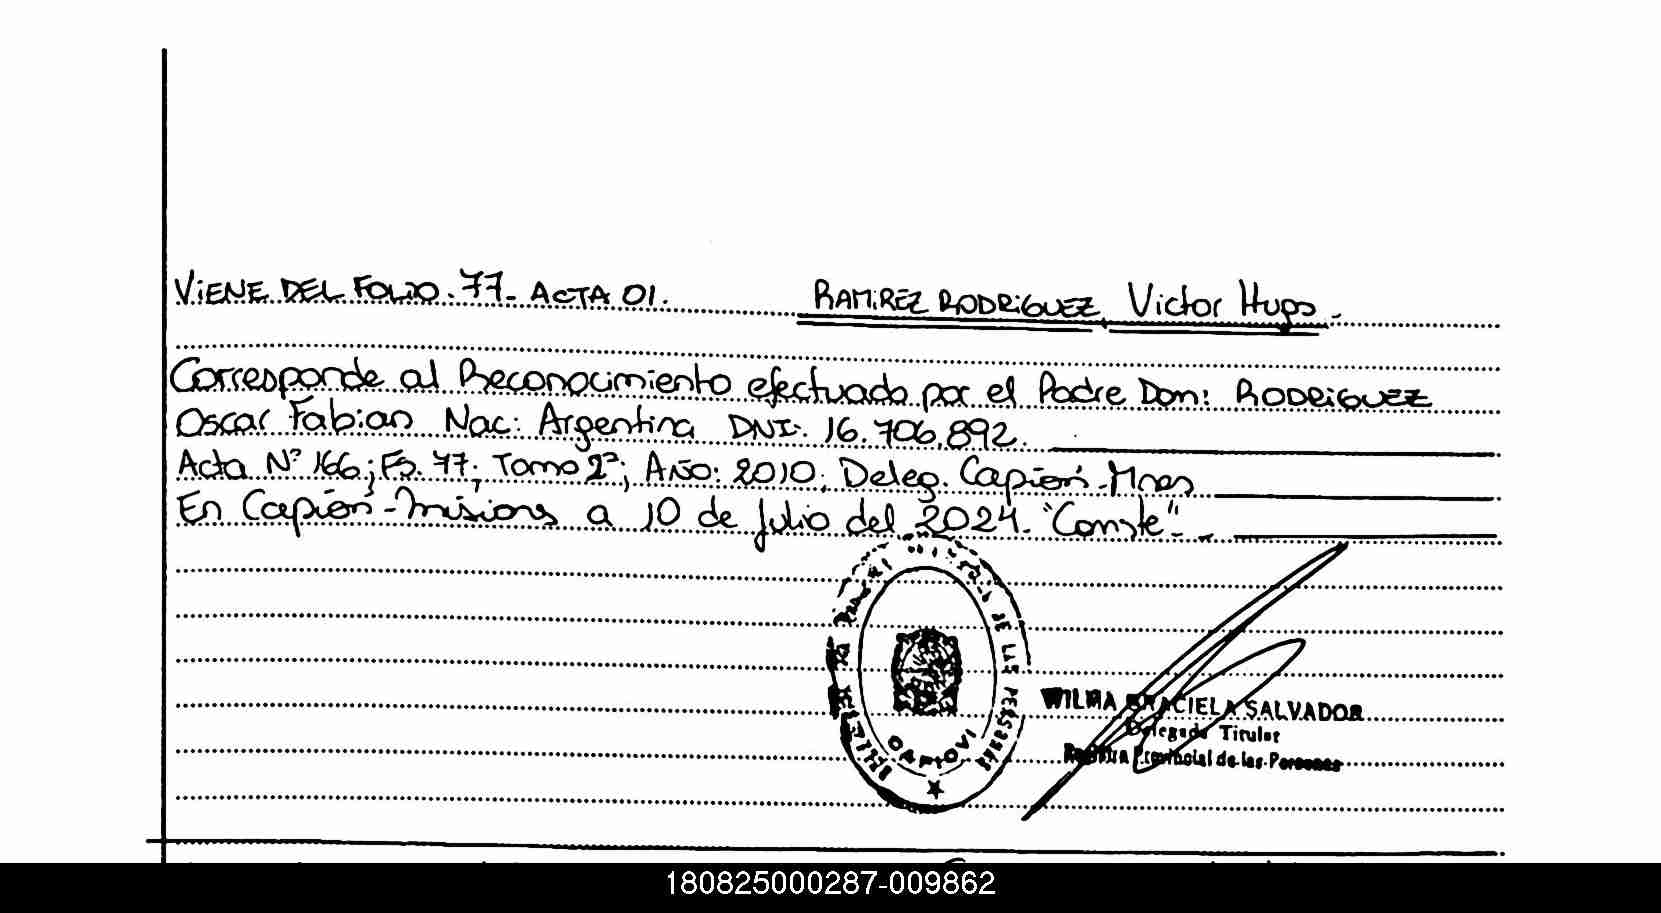 VIENE DEL FOLIO. 77- ACTA 01. RAMIREZ RODRIGUEZ, Victor Hugo.-
Corresponde al Reconocimiento efectuado por el Padre Don: RODRIGUEZ
Oscar Fabian Nac: Argentina DNI: 16.706.892.
Acta Nº 166; Fs. 77; Tomo 2º; Año: 2010. Deleg. Capioví-Mnes
En Capioví-Misiones a 10 de Julio del 2024. "Conste".-
DE LAS PERSONAS
CAPIOVI
WILMA GRACIELA SALVADOR
Delegada Titular
Registro Provincial de las Personas
180825000287-009862